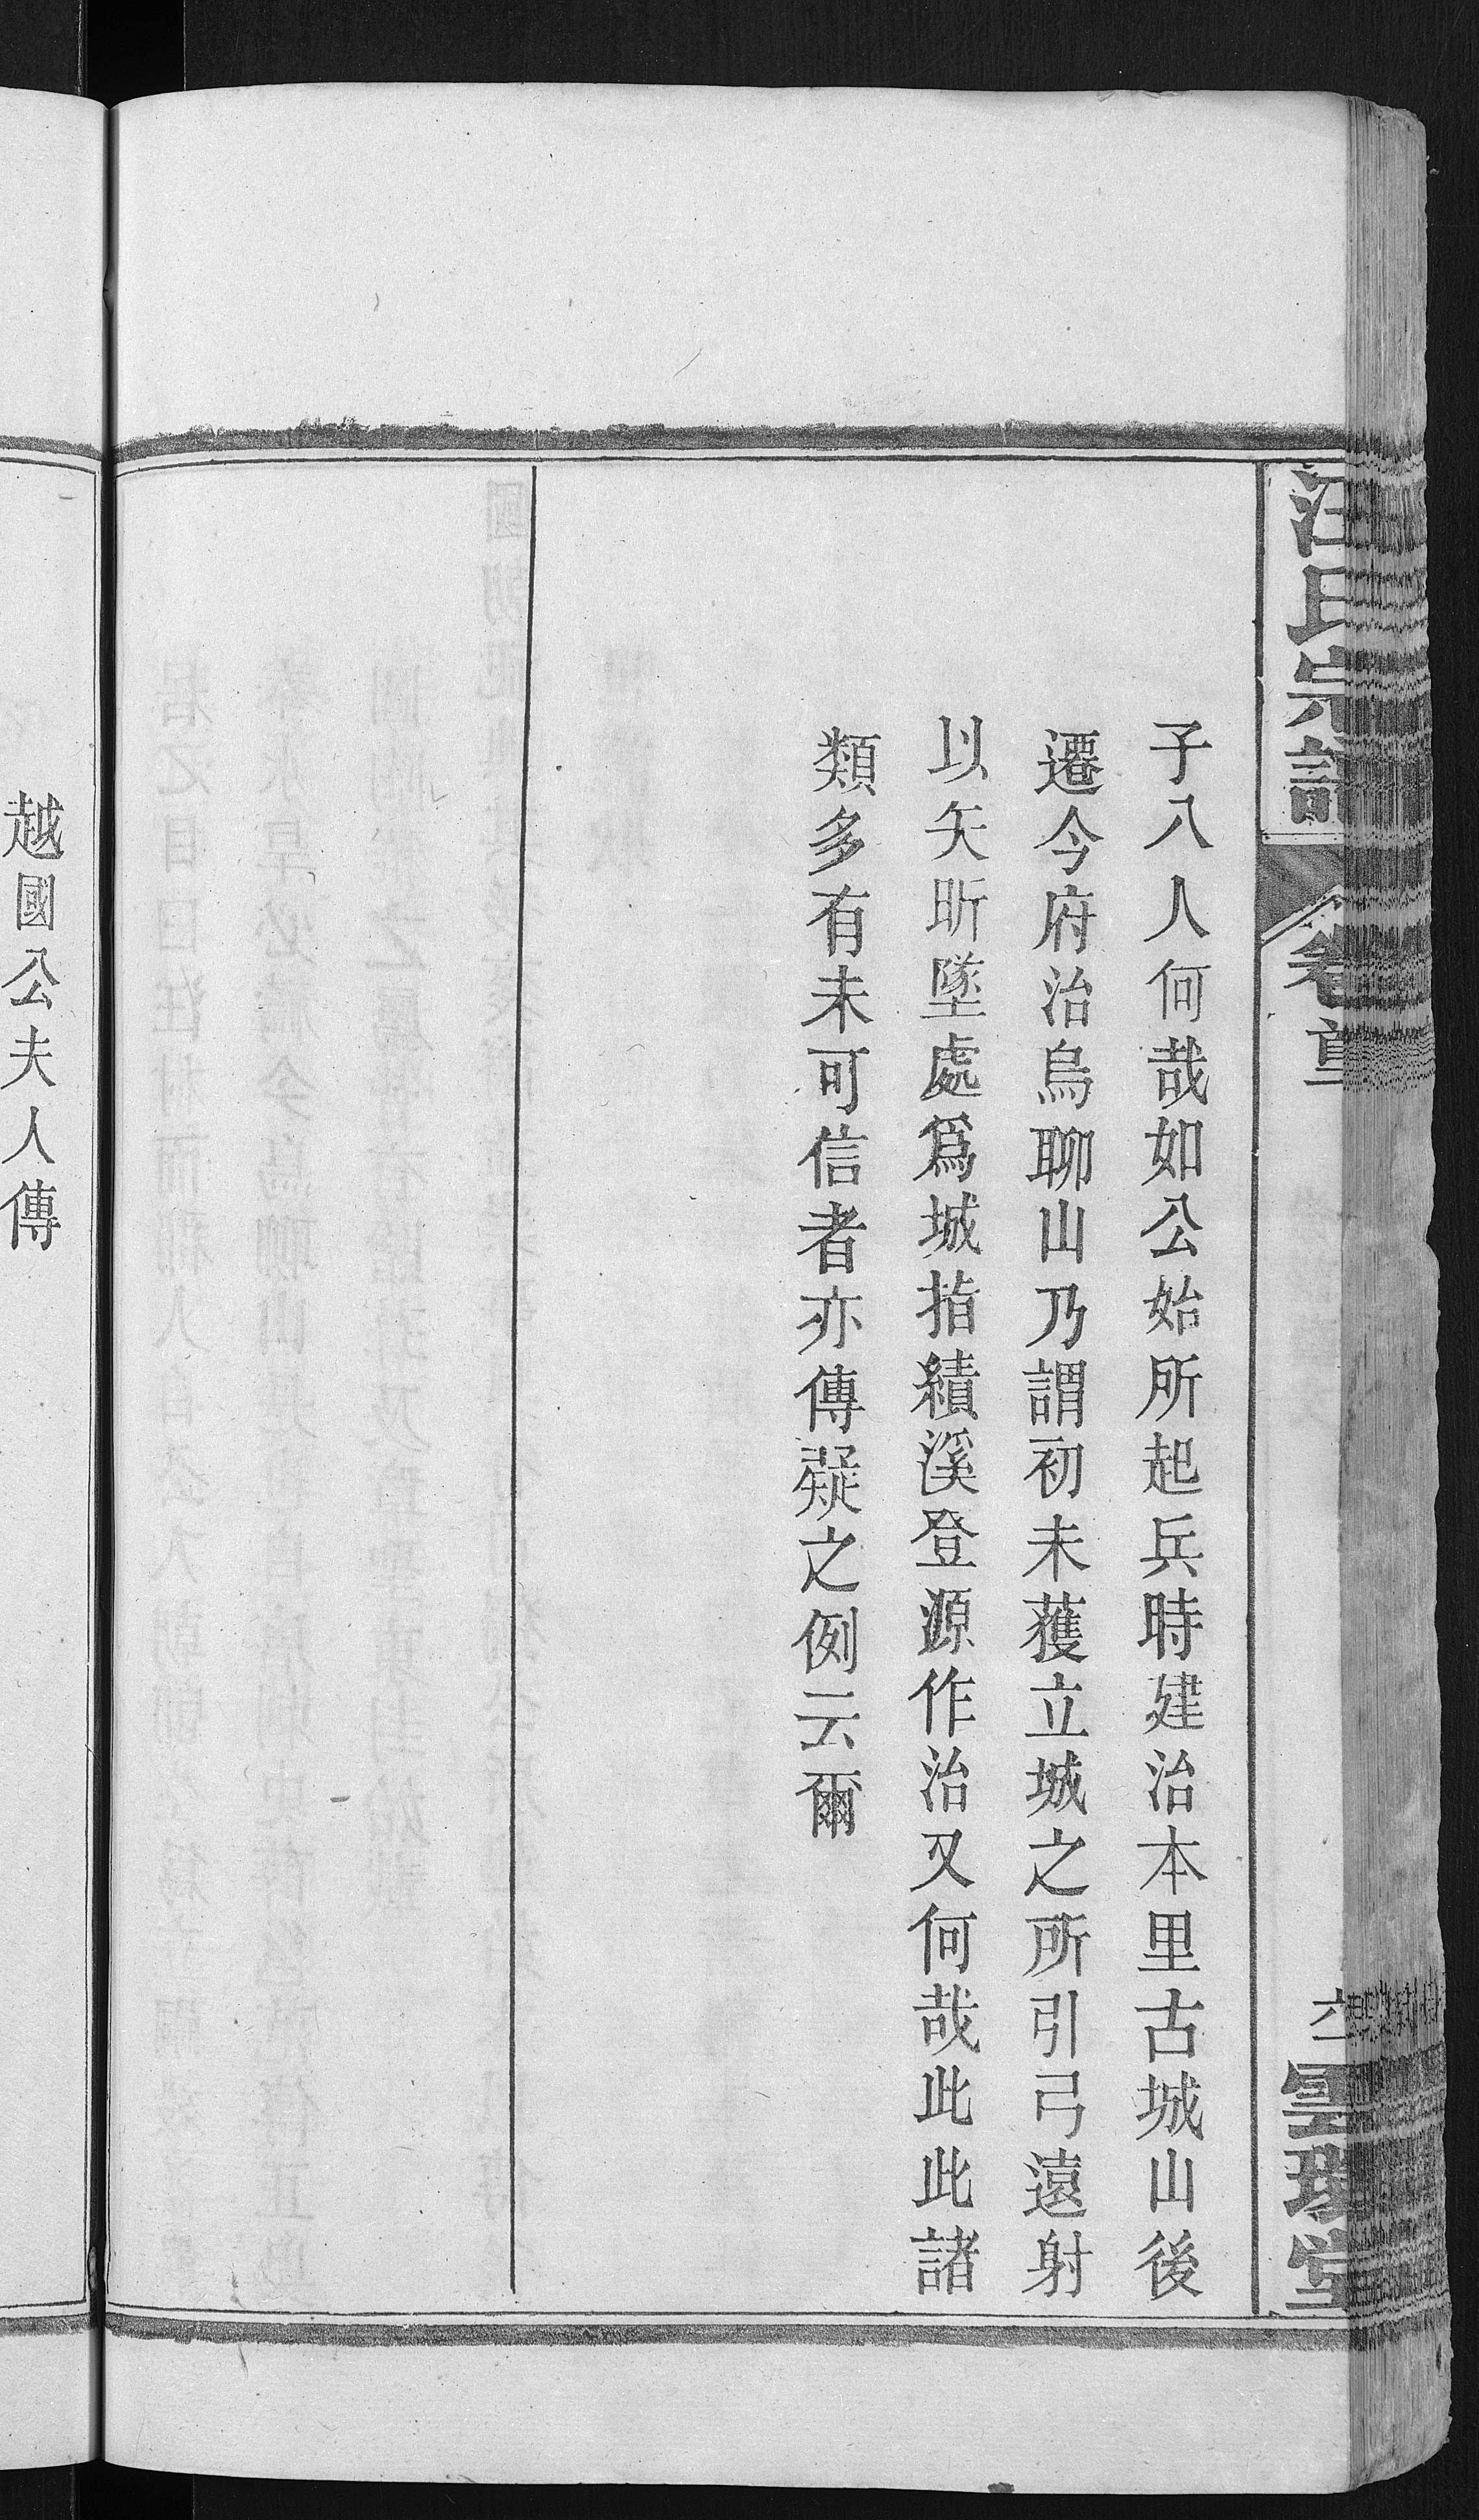 汪氏宗譜
卷首
雲瑞堂
子八人何哉如公始所起兵時建治本里古城山後
遷今府治烏聊山乃謂初未獲立城之所引弓遠射
以矢昕墜處爲城指績溪登源作治又何哉此此諸
類多有未可信者亦傳疑之例云爾
越國公夫人傳